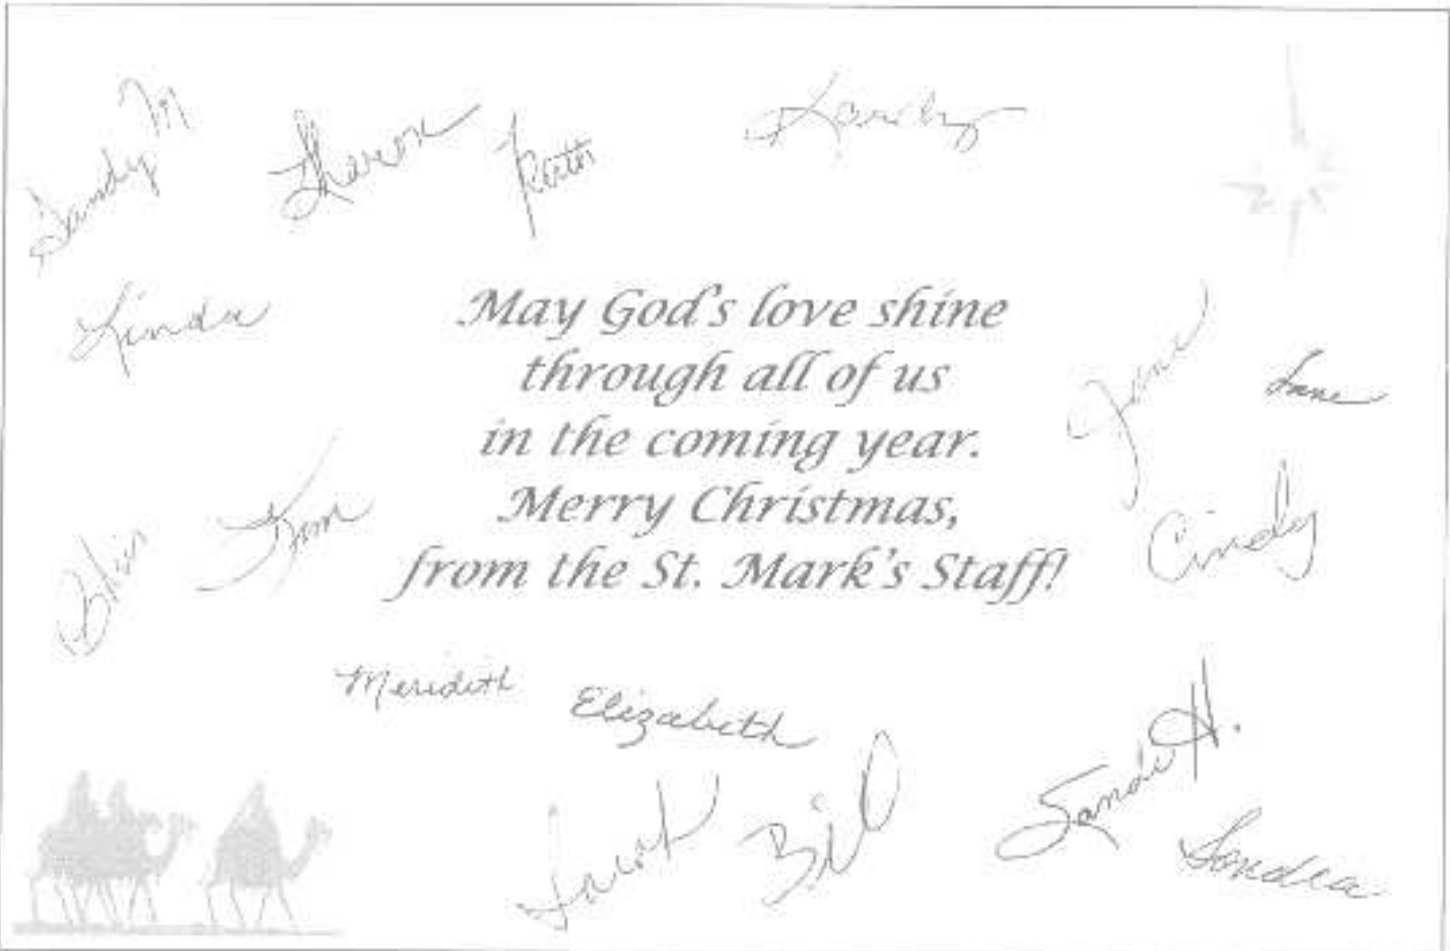 Sandy M
Sharon
Linda
May God's love shine
through all of us
in the coming year.
Merry Christmas,
from the St. Mark's Staff!
Kim
Cindy
Meredith
Elizabeth
Bill
Sandi H.
Sondra